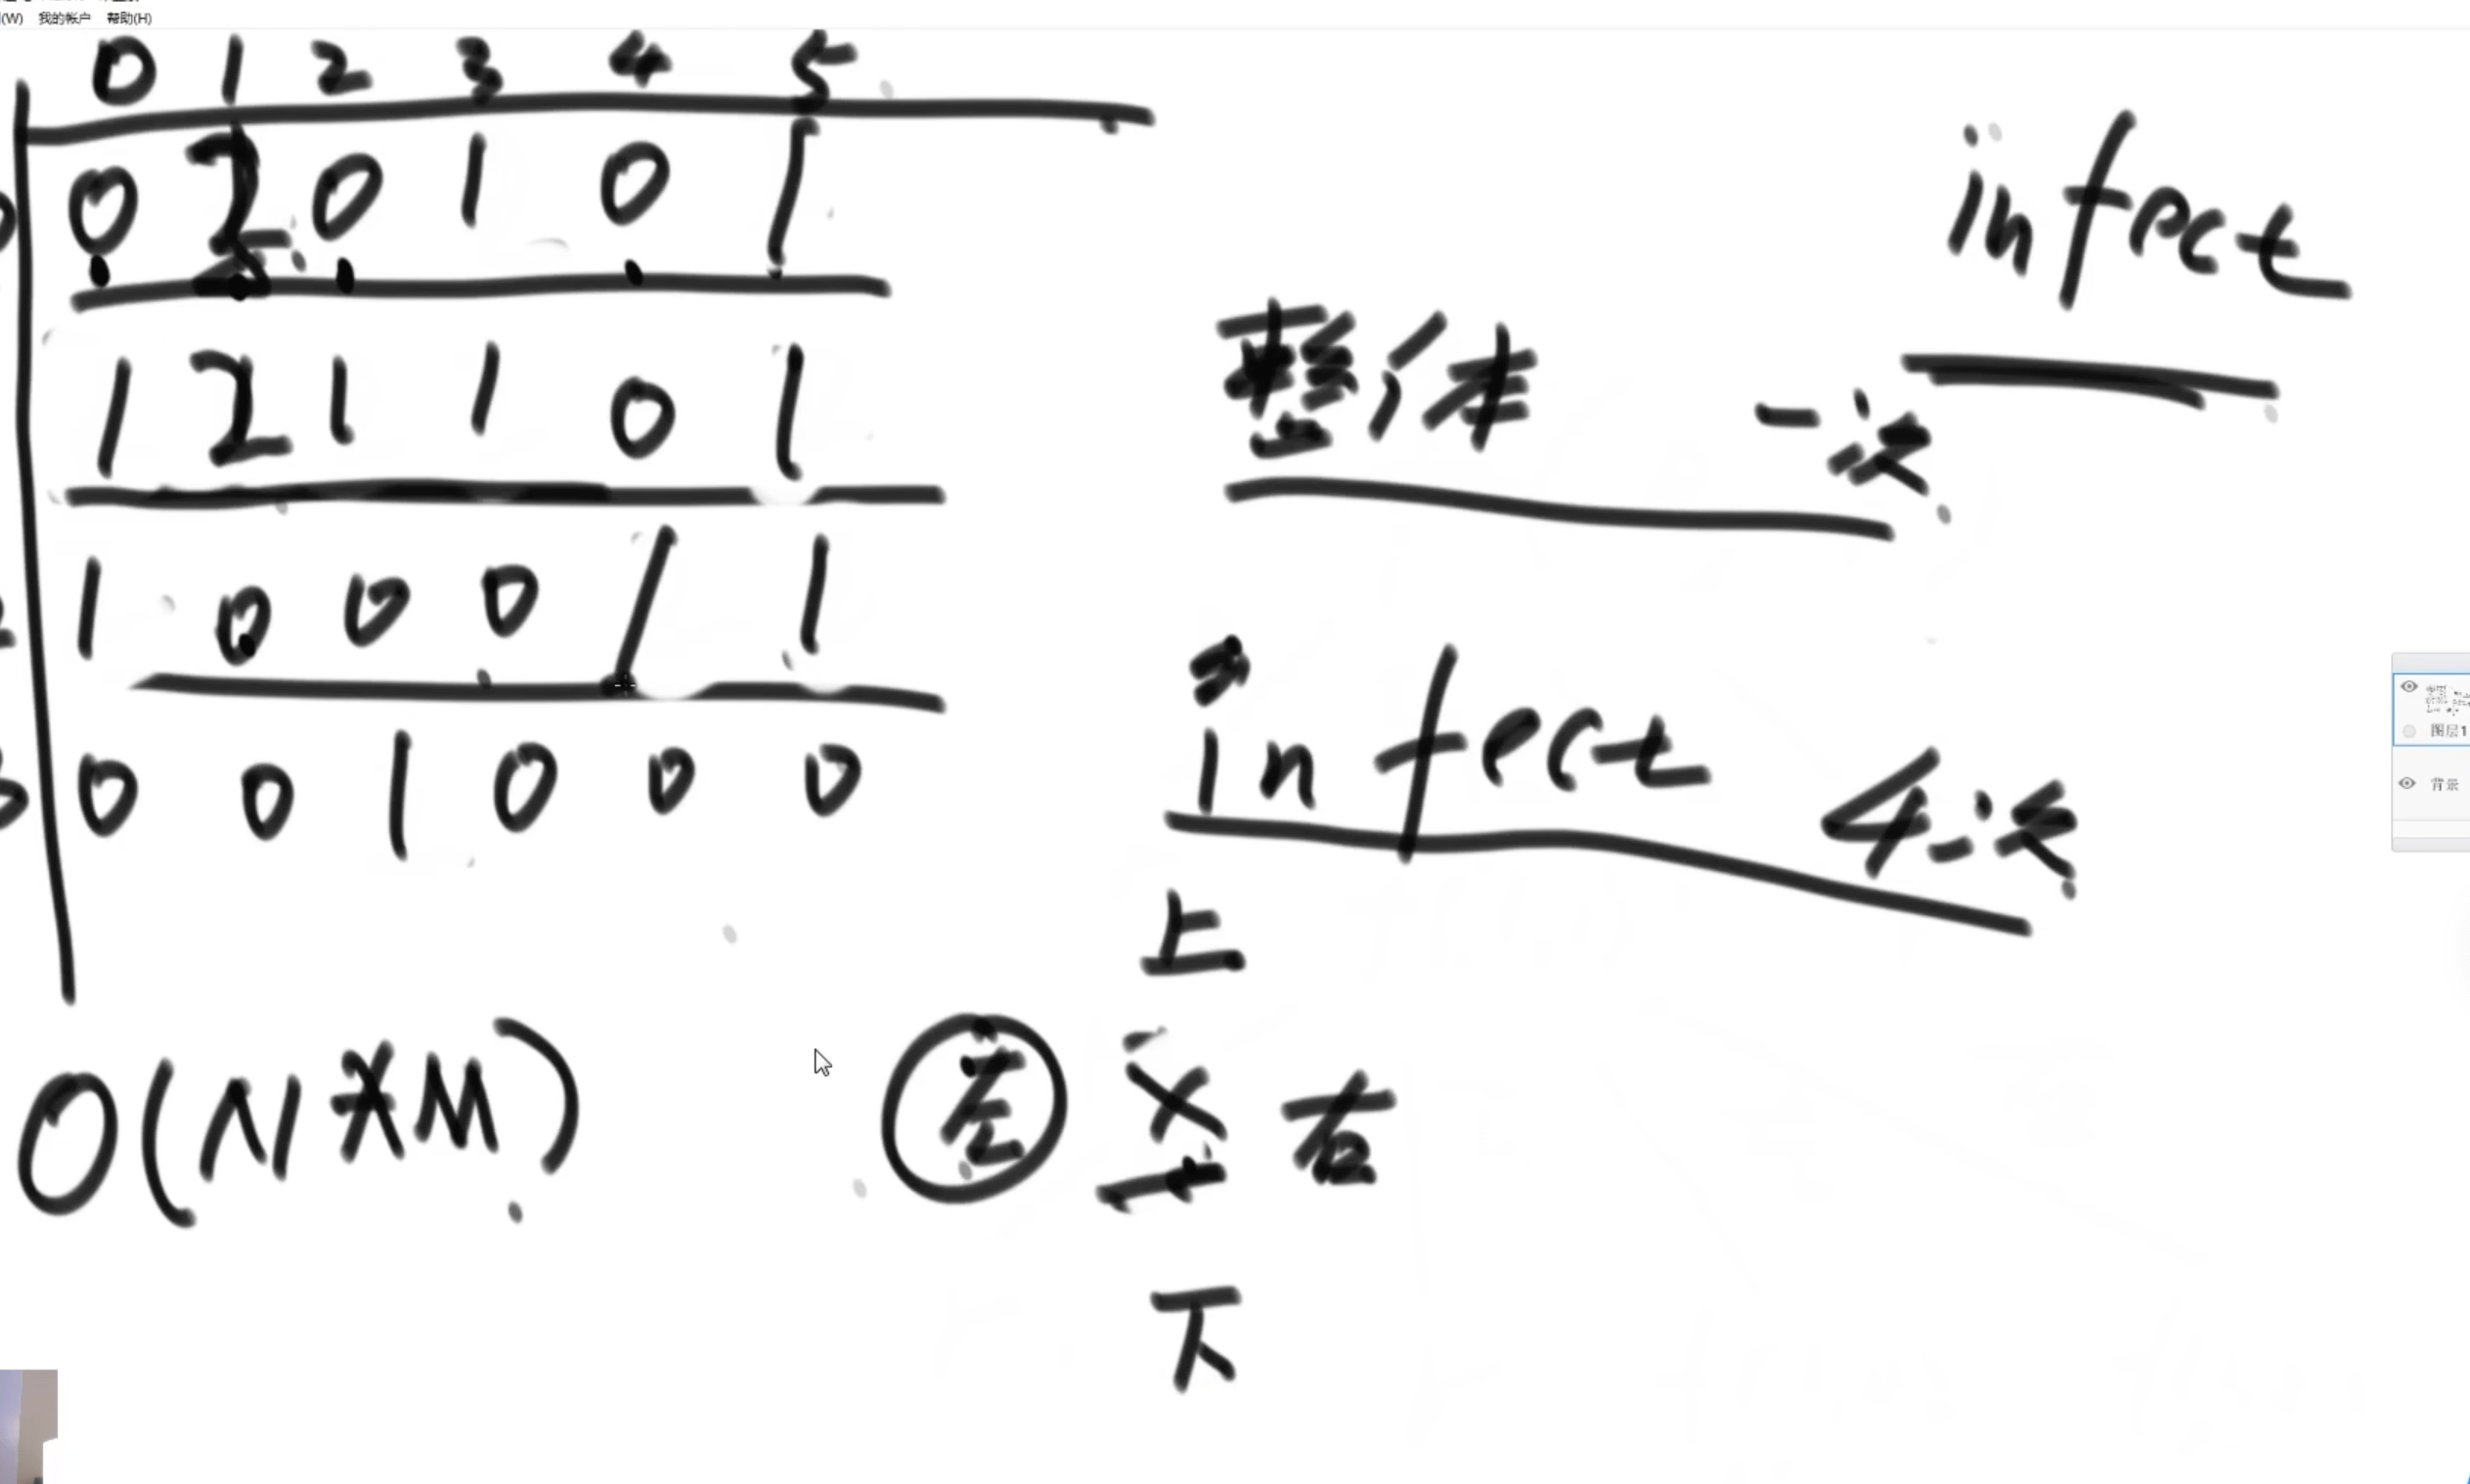 我的帐户 帮助(H)
0 1 2 3 4 5
0 2 0 1 0 1
1 2 1 1 0 1
1 0 0 0 1 1
0 0 1 0 0 0
O(N*M)
infect
整体 一次
infect 4次
上
左 X 右
下
图层1
背景